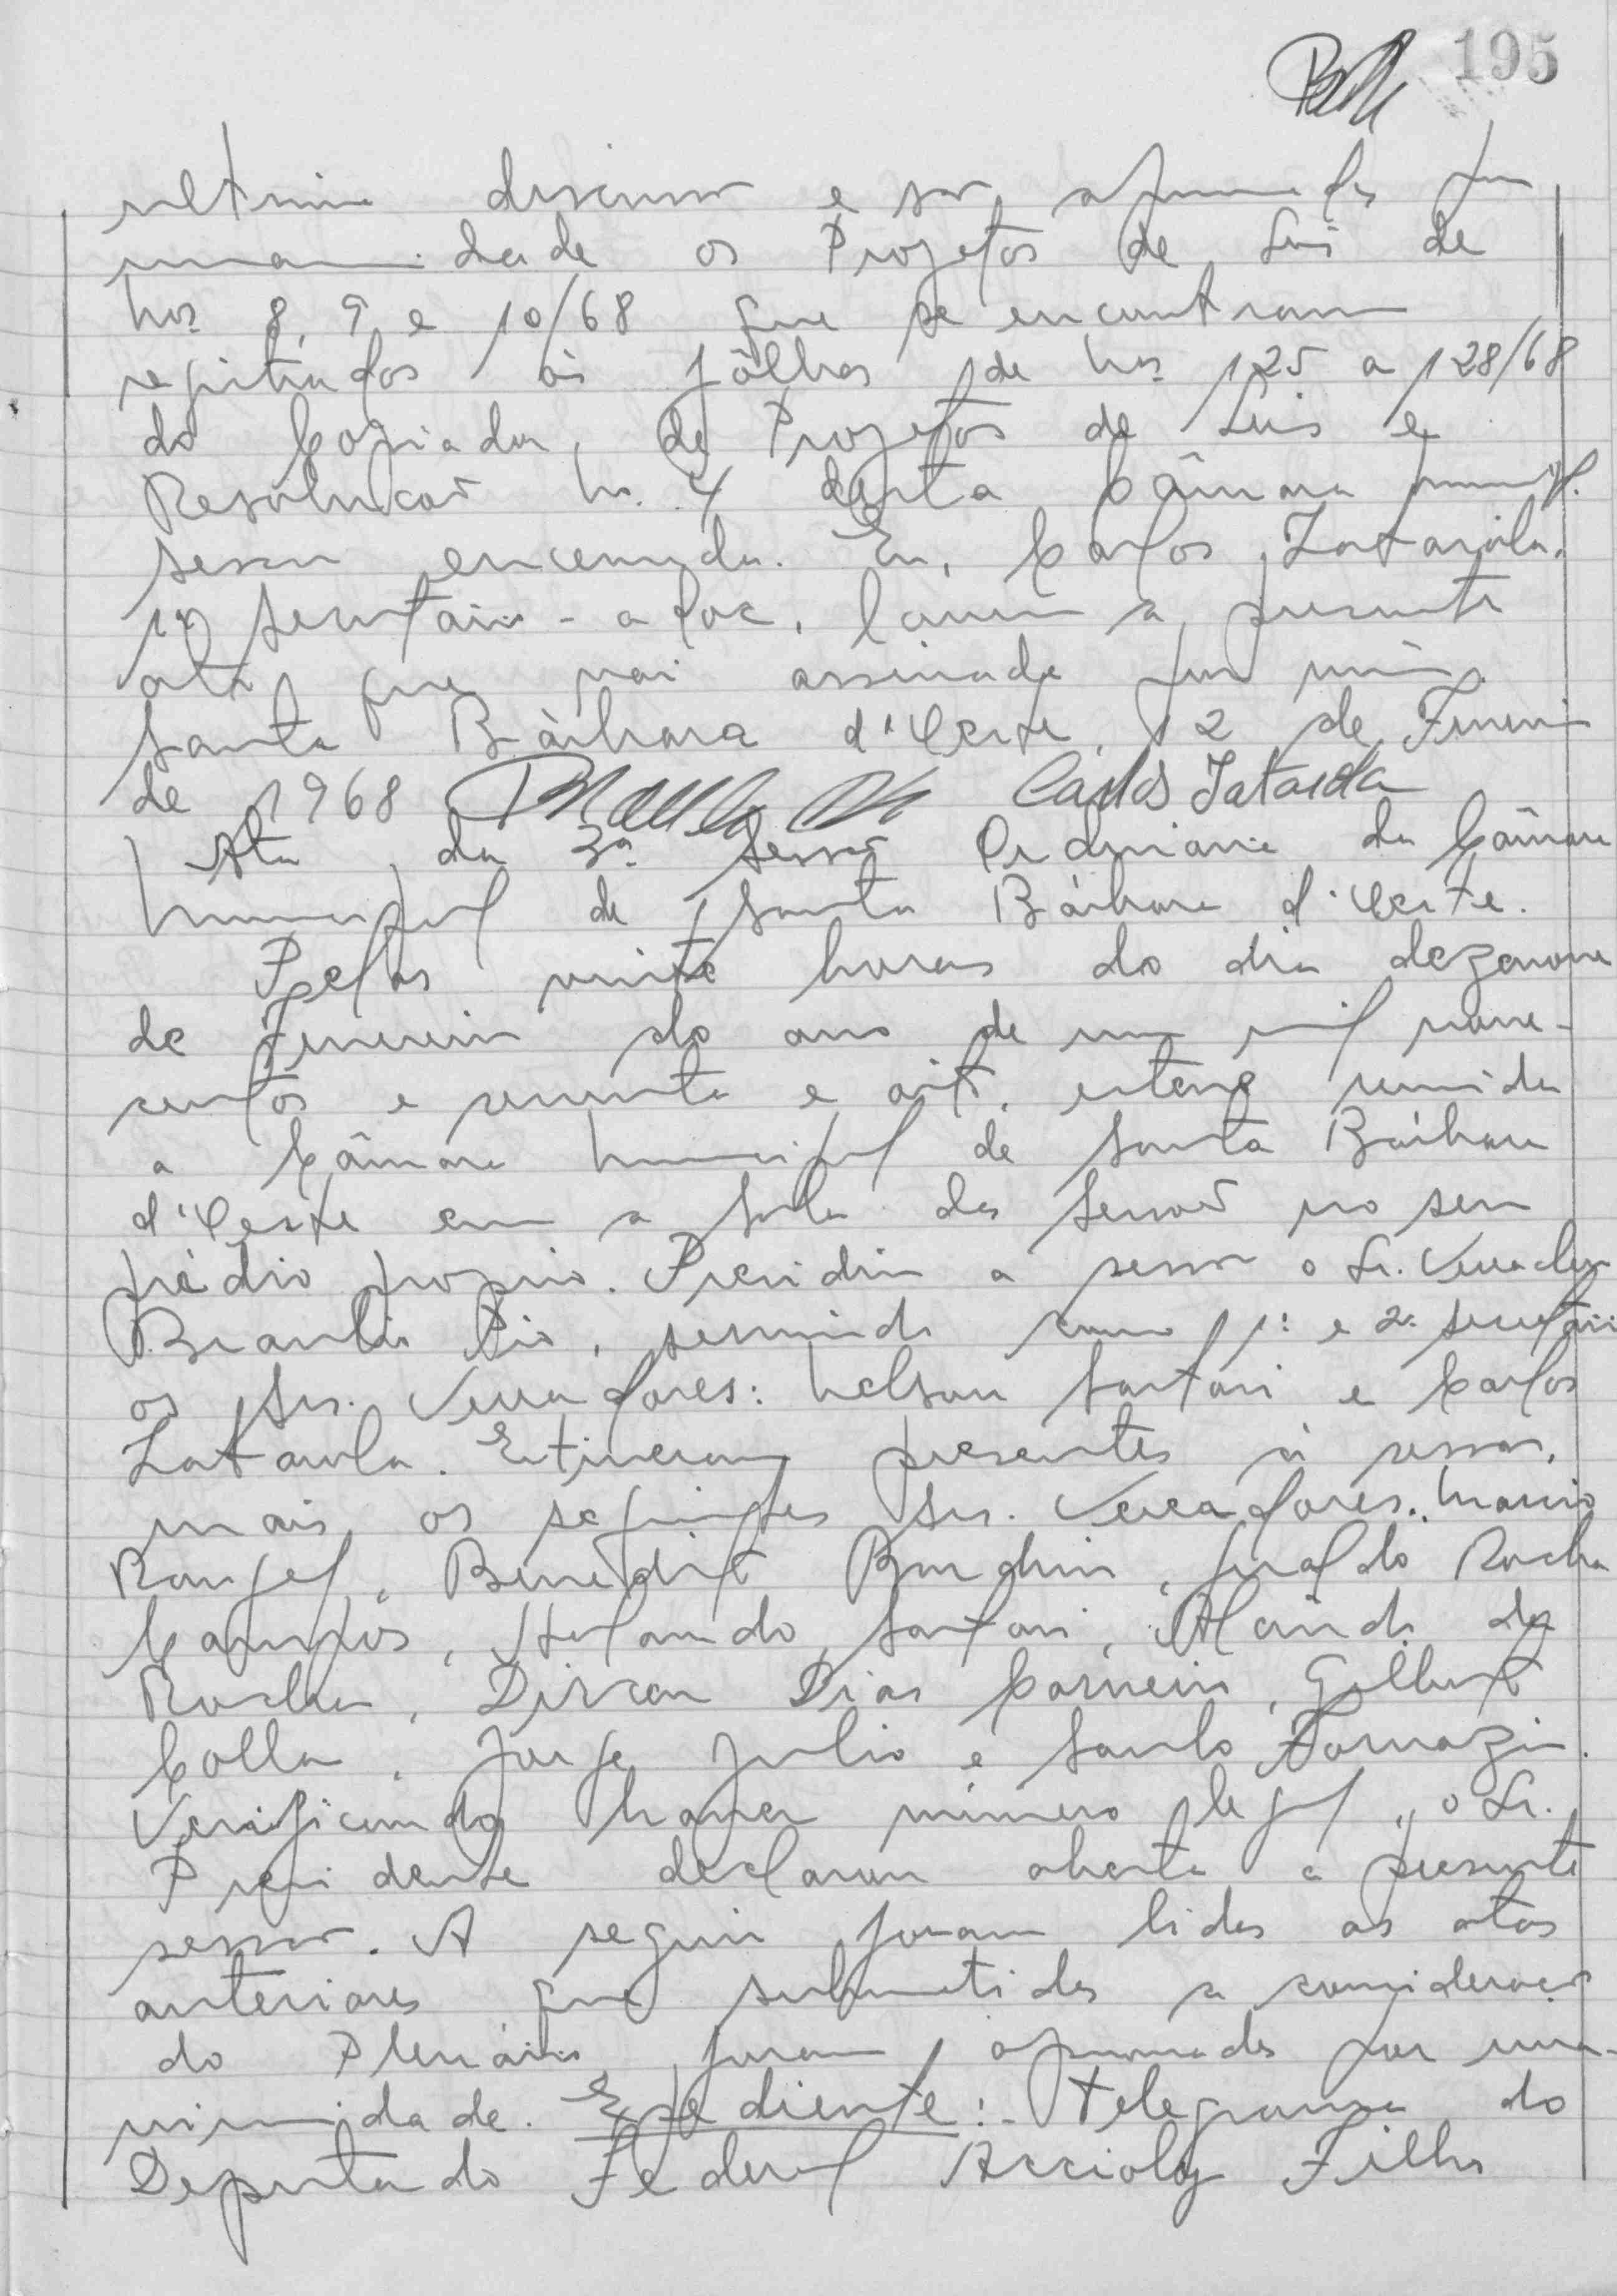 195
ultima discussão e são aprovados por
unanimidade os Projetos de Leis de
nos 8, 9 e 10/68 que se encontram
registrados às fôlhas de nos 125 a 128/68
do Copiador de Projetos de Leis e
Resolução no. 4 desta Câmara
sessão encerrada. Eu, Carlos Lataróla,
1º Secretário - adoc, lavrei a presente
ata que vai assinada por mim.
Santa Bárbara d'Oeste, 12 de Fevereiro
de 1968 Carlos Lataróla
Ata da 3ª Sessão Ordinaria da Câmara
Municipal de Santa Bárbara d'Oeste.
Pelas vinte horas do dia dezenove
de Fevereiro do ano de um mil nove-
centos e sessenta e oito, esteve reunida
a Câmara Municipal de Santa Bárbara
d'Oeste em a sala das sessoẽs no seu
prédio proprio. Presidiu a sessão o Sr. Vereador
Braulio Pio, servindo como 1º e 2º secretários
os Srs. Vereadores: Nelson Sartori e Carlos
Lataróla. Estiveram presentes à sessão,
mais os seguintes Srs. Vereadores: Mario
Rangel, Benedito Bardin, Geraldo Rocha
Campos, Orlando Sartori, Alcindo da
Rocha, Dirceu Dias Carneiro, Gilberto
Colla, Jorge Julio e Santo Tomazin.
Verificando haver número legal, o Sr.
Presidente declarou aberta a presente
sessão. A seguir foram lidas as atas
anteriores que submetidas a consideração
do Plenário foram aprovadas por una-
nimidade. Expediente:- telegrama do
Deputado Federal Accioly Filho